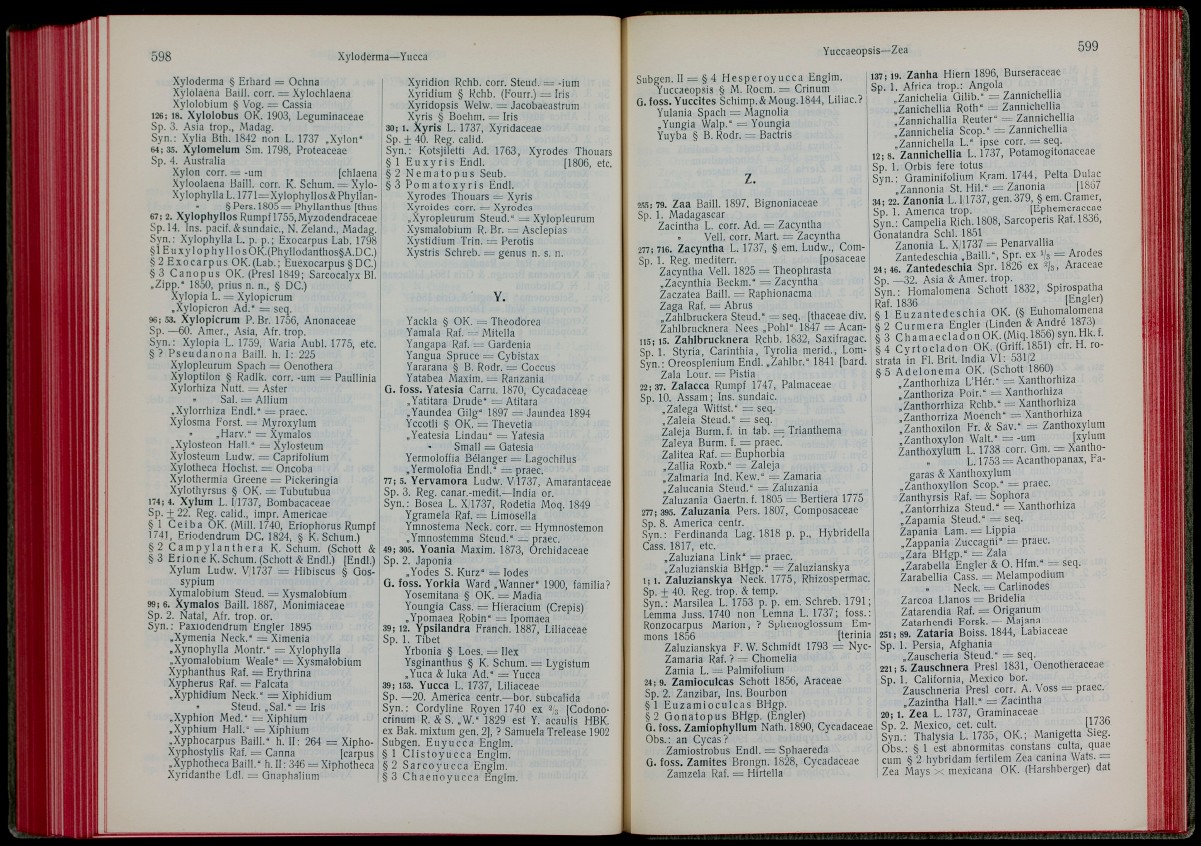 598
Xyloderma—Yucca
Xyloderma § Erhard = Ochna
Xylolaena Baill. corr. = Xylochlaena
Xylolobium § Vog. = Cassia
126; 18. Xylolobus OK. 1903, Leguminaceae
Sp. 3. Asia trop., Madag.
Syn.: Xylia Bth. 1842 non L. 1737 „Xylon“
64; 35. Xylomelum Sm. 1798, Proteaceae
Sp. 4. Australia
Xylon corr. = -um [chlaena
Xyloolaena Baill. corr. K. Schum. = Xylo-
Xylophylla L. 1771 = Xylophyllos & Phyllan-
„ § Pers. 1805 = Phyllanthus [thus
67; 2. Xylophyllos Rumpf 1755, Myzodendraceae
Sp. 14. Ins. pacif. & sundaic., N. Zeland., Madag.
Syn.: Xylophylla L. p. p.; Exocarpus Lab. 1798
§ 1 Euxylophyllos OK. (Phyllodanthos § A.DC.)
§ 2 Exocarpus OK. (Lab.; Euexocarpus § DC.)
§ 3 Canopus OK. (Presl 1849; Sarcocalyx Bl.
„Zipp.“ 1850, prius n. n., § DC.)
Xylopia L. = Xylopicrum
„Xylopicron Ad.“ = seq.
96; 53. Xylopicrum P. Br. 1756, Anonaceae
Sp. —60. Amer., Asia, Afr. trop.
Syn.: Xylopia L. 1759, Waria Aubl. 1775, etc.
§ ? Pseudanona Baill. h. I: 225
Xylopleurum Spach = Oenothera
Xyloptilon § Radlk. corr. -um = Paullinia
Xylorhiza Nutt. = Aster
„ Sal. = Allium
„Xylorrhiza Endl.“ = praec.
Xylosma Forst. = Myroxylum
„ „Harv.“ = Xymalos
„Xylosteon Hall.“ = Xylosteum
Xylosteum Ludw. = Caprifolium
Xylotheca Hochst. = Oncoba
Xylothermia Greene = Pickeringia
Xylothyrsus § OK. = Tubutubua
174; 4. Xylum L. I/1737, Bombacaceae
Sp. ± 22. Reg. calid., impr. Americae
§ 1 Ceiba OK. (Mill. 1740, Eriophorus Rumpf
1741, Eriodendrum DC. 1824, § K. Schum.)
§ 2 Campylanthera K. Schum. (Schott &
§ 3 Erione K. Schum. (Schott & Endl.) [Endl.)
Xylum Ludw. V/1737 = Hibiscus § Gos-
sypium
Xymalobium Steud. = Xysmalobium
99; 6. Xymalos Baill. 1887, Monimiaceae
Sp. 2. Natal, Afr. trop. or.
Syn.: Paxiodendrum Engler 1895
„Xymenia Neck.“ = Ximenia
„Xynophylla Montr.“ = Xylophylla
„Xyomalobium Weale“ = Xysmalobium
Xyphanthus Raf. = Erythrina
Xypherus Raf. = Falcata
„Xyphidium Neck.“ = Xiphidium
„ Steud. „Sal.“ = Iris
„Xyphion Med.“ = Xiphium
„Xyphium Hall.“ = Xiphium
„Xyphocarpus Baill.“ h. II: 264 = Xipho-
Xyphostylis Raf. = Canna [carpus
„Xyphotheca Baill.“ h. II: 346 = Xiphotheca
Xyridanthe Ldl. = Gnaphalium
Xyridion Rchb. corr. Steud. = -ium
Xyridium § Rchb. (Fourr.) = Iris
Xyridopsis Welw. = Jacobaeastrum
Xyris § Boehm. = Iris
30; 1. Xyris L. 1737, Xyridaceae
Sp. ± 40. Reg. calid.
Syn.: Kotsjiletti Ad. 1763, Xyrodes Thouars
§ 1 Euxyris Endl. [1806, etc.
§ 2 Nematopus Seub.
§ 3 Pomatoxyris Endl.
Xyrodes Thouars = Xyris
Xyroides corr. = Xyrodes
„Xyropleurum Steud.“ = Xylopleurum
Xysmalobium R. Br. = Asclepias
Xystidium Trin. = Perotis
Xystris Schreb. = genus n. s. n.
Y.
Yackla § OK. = Theodorea
Yamala Raf. = Mitella
Yangapa Raf. = Gardenia
Yangua Spruce = Cybistax
Yararana § B. Rodr. = Coccus
Yatabea Maxim. = Ranzania
G. foss. Yatesia Carru. 1870, Cycadaceae
„Yatitara Drude“ = Atitara
„Yaundea Gilg“ 1897 = Jaundea 1894
Yccotli § OK. = Thevetia
„Yeatesia Lindau“ = Yatesia
„ Small = Gatesia
Yermoloffia Bélanger = Lagochilus
„Yermolofia Endl.“ = praec.
77; 5. Yervamora Ludw. V/1737, Amarantaceae
Sp. 3. Reg. canar.-medit.—India or.
Syn.: Bosea L. X/1737, Rodetia Moq. 1849
Ygramela Raf. = Limosella
Ymnostema Neck. corr. = Hymnostemon
„Ymnostemma Steud.“ = praec.
49; 305. Yoania Maxim. 1873, Orchidaceae
Sp. 2. Japonia
„Yodes S. Kurz“ = Iodes
G. foss. Yorkia Ward „Wanner“ 1900, familia?
Yosemitana § OK. = Madia
Youngia Cass. = Hieracium (Crepis)
„Ypomaea Robin“ = Ipomaea
39; 12. Ypsilandra Franch. 1887, Liliaceae
Sp. 1. Tibet
Yrbonia § Loes. = Ilex
Ysginanthus § K. Schum. = Lygistum
„Yuca & Iuka Ad.“ = Yucca
39; 153. Yucca L. 1737, Liliaceae
Sp. —20. America centr.—bor. subcalida
Syn.: Cordyline Royen 1740 ex 2/3 [Codono-
crinum R. & S. „W.“ 1829 est Y. acaulis HBK.
ex Bak. mixtum gen. 2], ? Samuela Trelease 1902
Subgen. Euyucca Englm.
§ 1 Clistoyucca Englm.
§ 2 Sarcoyucca Englm.
§ 3 Chaenoyucca Englm.
Yuccaeopsis—Zea
599
Subgen. II = § 4 Hesperoyucca Englm.
Yuccaeopsis § M. Roem. = Crinum
G. foss. Yuccites Schimp. & Moug. 1844, Liliac.?
Yulania Spach = Magnolia
„Yungia Walp.“ = Youngia
Yuyba § B. Rodr. = Bactris
Z.
255; 79. Zaa Baill. 1897, Bignoniaceae
Sp. 1. Madagascar
Zacintha L. corr. Ad. = Zacyntha
„ Vell. corr. Mart. = Zacyntha
277; 716. Zacyntha L. 1737, § em. Ludw., Com-
Sp. 1. Reg. mediterr. [posaceae
Zacyntha Vell. 1825 = Theophrasta
„Zacynthia Beckm.“ = Zacyntha
Zaczatea Baill. = Raphionacma
Zaga Raf. = Abrus
„Zahlbruckera Steud.“ = seq. [thaceae div.
Zahlbrucknera Nees „Pohl“ 1847 = Acan-
115; 15. Zahlbrucknera Rchb. 1832, Saxifragac.
Sp. 1. Styria, Carinthia, Tyrolia merid., Lom-
Syn.: Oreosplenium Endl. „Zahlbr.“ 1841 [bard.
Zala Lour. = Pistia
22; 37. Zalacca Rumpf 1747, Palmaceae
Sp. 10. Assam; Ins. sundaic.
„Zalega Wittst.“ = seq.
„Zaleia Steud.“ = seq.
Zaleja Burm. f. in tab. = Trianthema
Zaleya Burm. f. = praec.
Zalitea Raf. = Euphorbia
„Zallia Roxb.“ = Zaleja
„Zalmaria Ind. Kew.“ = Zamaria
„Zalucania Steud.“ = Zaluzania
Zaluzania Gaertn. f. 1805 = Bertiera 1775
277; 395. Zaluzania Pers. 1807, Composaceae
Sp. 8. America centr.
Syn.: Ferdinanda Lag. 1818 p. p., Hybridella
Cass. 1817, etc.
„Zaluziana Link“ = praec.
„Zaluzianskia BHgp.“ = Zaluzianskya
1; 1. Zaluzianskya Neck. 1775, Rhizospermac.
Sp. ± 40. Reg. trop. & temp.
Syn.: Marsilea L. 1753 p. p. em. Schreb. 1791;
Lemma Juss. 1740 non Lemna L. 1737; foss.:
Ronzocarpus Marion, ? Sphenoglossum Em-
mons 1856 [terinia
Zaluzianskya F. W. Schmidt 1793 = Nyc-
Zamaria Raf. ? = Chomelia
Zamia L. = Palmifolium
24; 9. Zamioculcas Schott 1856, Araceae
Sp. 2. Zanzibar, Ins. Bourbon
§ 1 Euzamioculcas BHgp.
§ 2 Gonatopus BHgp. (Engler)
G. foss. Zamiophyllum Nath. 1890, Cycadaceae
Obs.: an Cycas ?
Zamiostrobus Endl. = Sphaereda
G. foss. Zamites Brongn. 1828, Cycadaceae
Zamzela Raf. = Hirtella
137; 19. Zanha Hiern 1896, Burseraceae
Sp. 1. Africa trop.: Angola
„Zanichelia Gilib.“ = Zannichellia
„Zanichellia Roth“ = Zannichellia
„Zannichallia Reuter“ = Zannichellia
„Zannichelia Scop.“ = Zannichellia
„Zannichella L.“ ipse corr. = seq.
12; 8. Zannichellia L. 1737, Potamogitonaceae
Sp. 1. Orbis fere totus
Syn.: Graminifolium Kram. 1744, Pelta Dulac
„Zannonia St. Hil.“ = Zanonia [1867
34; 22. Zanonia L. I/1737, gen. 379, § em. Cramer,
Sp. 1. America trop. [Ephemeraceae
Syn.: Campelia Rich. 1808, Sarcoperis Raf. 1836,
Gonatandra Schl. 1851
Zanonia L. X/1737 = Penarvallia
Zantedeschia „Baill.“, Spr. ex 1/3 = Arodes
24; 46. Zantedeschia Spr. 1826 ex 2/3, Araceae
Sp. —32. Asia & Amer. trop.
Syn.: Homalomena Schott 1832, Spirospatha
Raf. 1836 [Engler)
§ 1 Euzantedeschia OK. (§ Euhomalomena
§ 2 Curmera Engler (Linden & André 1873)
§ 3 Chamaecladon OK. (Miq. 1856) syn. Hk. f.
§ 4 Cyrtocladon OK. (Griff. 1851) cfr. H. ro-
strata in Fl. Brit. India VI: 531/2
§ 5 Adelonema OK. (Schott 1860)
„Zanthorhiza L'Hér.“ = Xanthorhiza
„Zanthoriza Poir.“ = Xanthorhiza
„Zanthorrhiza Rchb.“ = Xanthorhiza
„Zanthorriza Moench“ = Xanthorhiza
„Zanthoxilon Fr. & Sav.“ = Zanthoxylum
„Zanthoxylon Walt.“ = -um [xylum
Zanthoxylum L. 1738 corr. Gm. = Xantho-
„ L. 1753 = Acanthopanax, Fa-
garas & Xanthoxylum
„Zanthoxyllon Scop.“ = praec.
Zanthyrsis Raf. = Sophora
„Zantorrhiza Steud.“ = Xanthorhiza
„Zapamia Steud.“ = seq.
Zapania Lam. = Lippia
„Zappania Zuccagni“ = praec.
„Zara BHgp.“ = Zala
„Zarabella Engler & O. Hfm.“ = seq.
Zarabellia Cass. = Melampodium
„ Neck. = Carlinodes
Zarcoa Llanos = Bridelia
Zatarendia Raf. = Origanum
Zatarhendi Forsk. = Majana
251; 89. Zataria Boiss. 1844, Labiaceae
Sp. 1. Persia, Afghania
„Zauscheria Steud.“ = seq.
221; 5. Zauschnera Presl 1831, Oenotheraceae
Sp. 1. California, Mexico bor.
Zauschneria Presl corr. A. Voss = praec.
„Zazintha Hall.“ = Zacintha
20; 1. Zea L. 1737, Graminaceae
Sp. 2. Mexico, cet. cult. [1736
Syn.: Thalysia L. 1735, OK.; Manigetta Sieg.
Obs.: § 1 est abnormitas constans culta, quae
cum § 2 hybridam fertilem Zea canina Wats. =
Zea Mays × mexicana OK. (Harshberger) dat